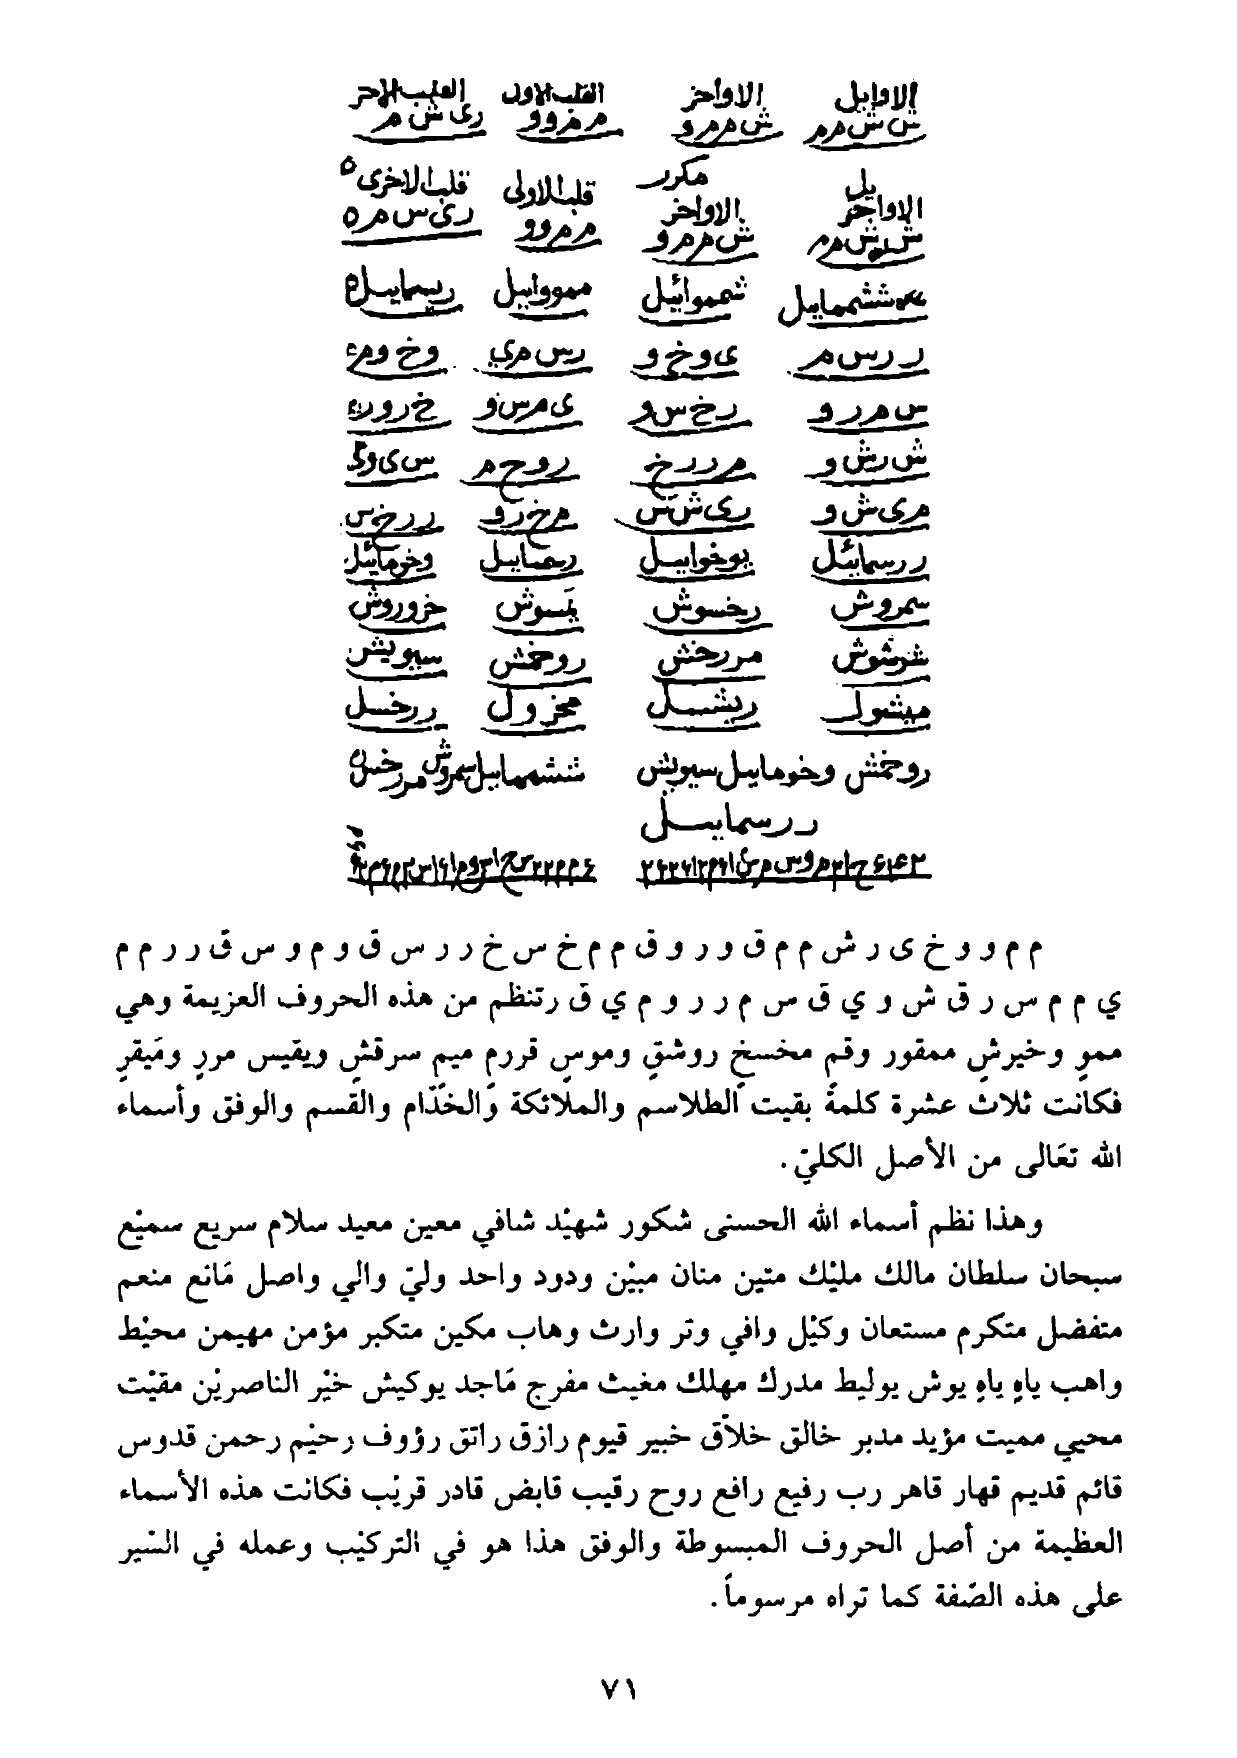 الاوايل الاواخر القلب الاول القلب الاخر
س ش م م ش م م و م م و و ر ى ش م
مكرر
الاواخر قلب الاولى قلب الاخرى
ش م م و م م و و ر ى س م ه
شموائيل ممووايل
ر ر س م ى و خ و ر س م ي
س م ر و ر خ س و ى م س و
ش ر ش و م ر ر خ ر و خ م
م ى ش و ر ى ش س م خ ر و ر ر خ س
ررسمائيل يوخوابيل وخرمائيل
سمروش رخسوش خزوروش
شرشوش مررخش روخمش سيويش
ميشول ريشسل مخزول ررخسل
روخمش وخومايل سيويش
ررسماييل
م م و و خ ى ر ش م م ق و ر و ق م م خ س خ ر ر س ق و م و س ق ر ر م م
ي م م س ر ق ش و ي ق س م ر ر و م ي ق رتنظم من هذه الحروف العزيمة وهي
مموٍ وخيرشٍ ممقور وقم مخسخٍ روشقٍ وموسٍ قررم ميم سرقشٍ ويقيس مررٍ ومَيقرٍ
فكانت ثلاث عشرة كلمة بقيت الطلاسم والملائكة والخدّام والقسم والوفق وأسماء
الله تعَالى من الأصل الكليّ.
وهذا نظم أسماء الله الحسنى شكور شهيْد شافي معين معيد سلام سريع سميْع
سبحان سلطان مالك مليْك متين منان مبيْن ودود واحد وليّ والي واصل مَانع منعم
متفضل متكرم مستعان وكيْل وافي وتر وارث وهاب مكين متكبر مؤمن مهيمن محيْط
واهب ياهٍ ياهٍ يوش يوليط مدرك مهلك مغيث مفرج مَاجد يوكيش خيْر الناصريْن مقيْت
محيي مميت مؤيد مدبر خالق خلاّق خبير قيوم رازق راتق رؤوف رحيْم رحمن قدوس
قائم قديم قهار قاهر رب رفيع رافع روح رقيب قابض قادر قريْب فكانت هذه الأسماء
العظيمة من أصل الحروف المبسوطة والوفق هذا هو في التركيْب وعمله في السّير
على هذه الصّفة كما تراه مرسوماً.
٧١